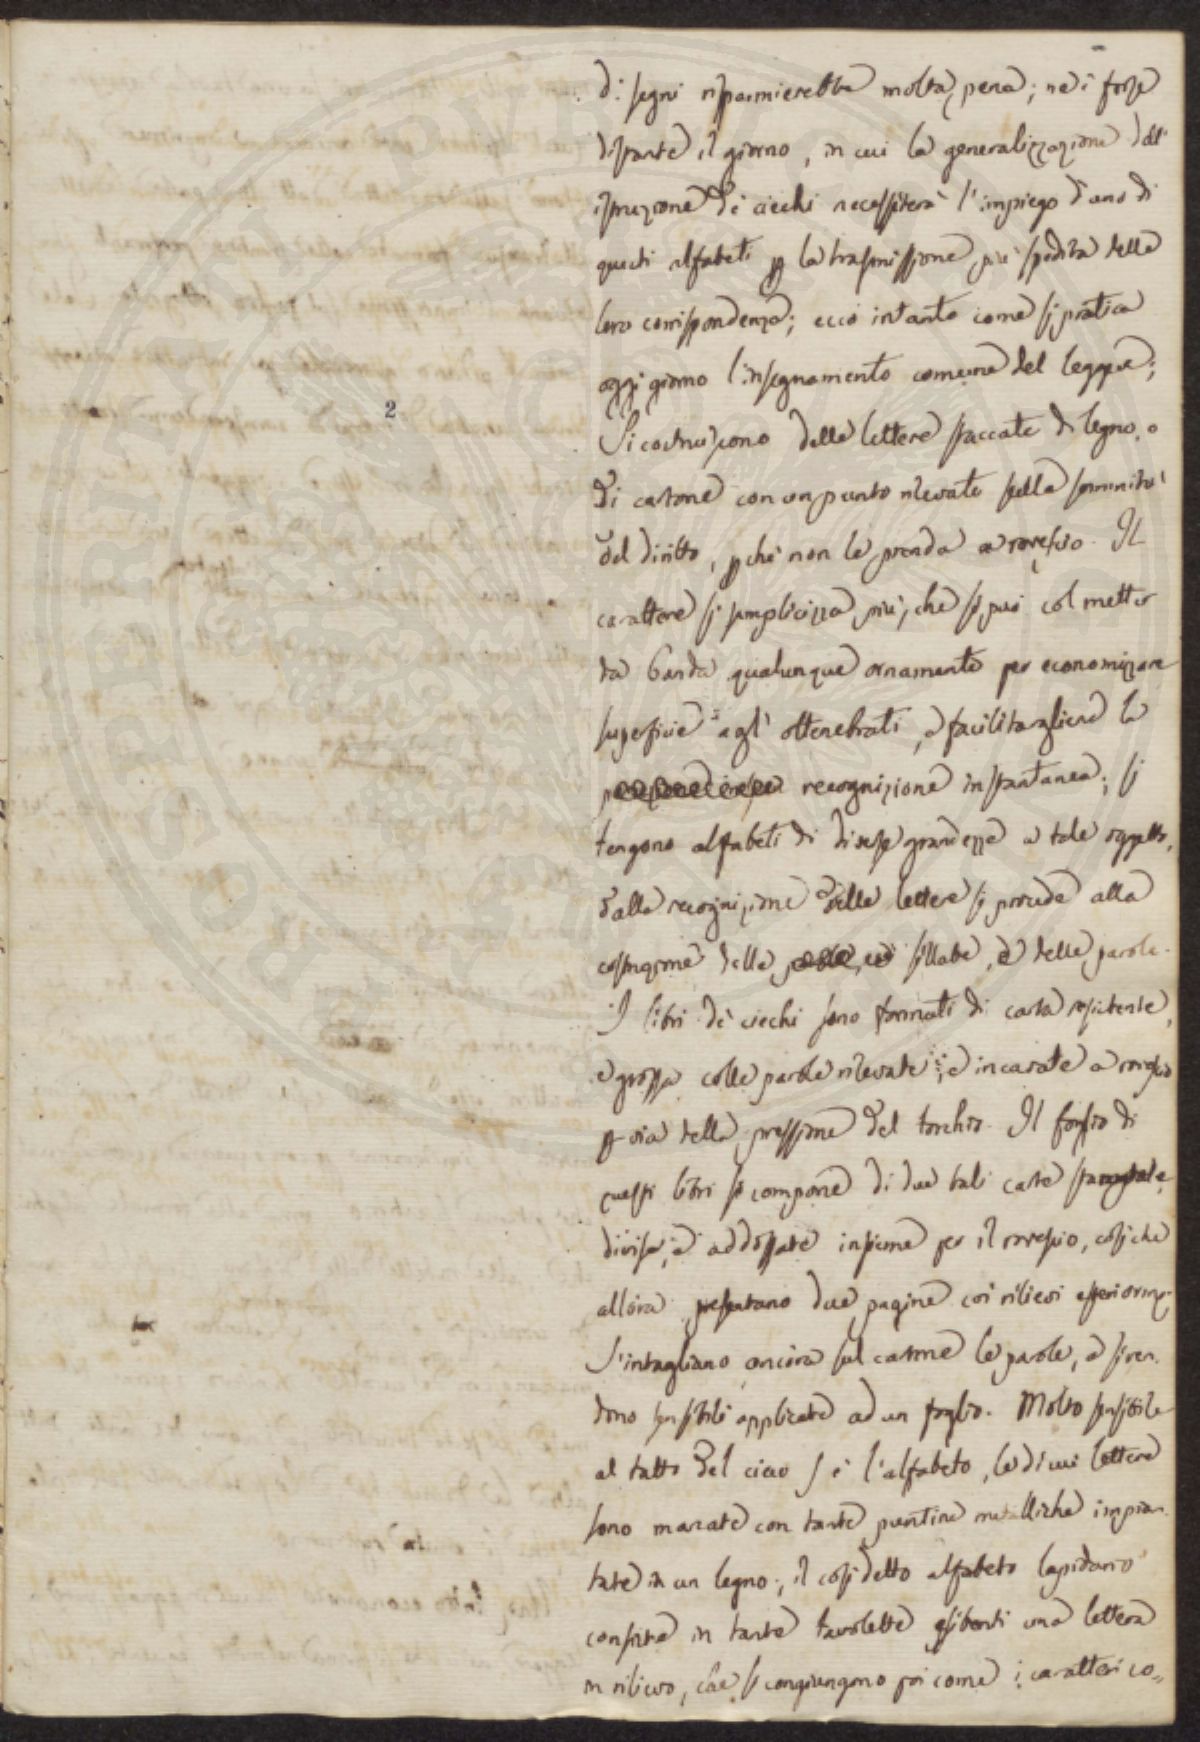 di segni risparmierebbe molta pena; nè è forse
distante il giorno, in cui la generalizzazione dell'
istruzione de' ciechi necessiterà l'impiego d'uno di
questi alfabeti p la trasmissione più spedita della
loro corrispondenza; ecco intanto come si pratica
oggi giorno l'insegnamento comune del leggere;
Si costruiscono delle lettere staccate di legno, o
di cartone con un punto rilevato sulla sommità
del diritto, pchè non le prenda a rovescio. Il
carattere si semplicizza più, che si può col metter
da banda qualunque ornamento per economizzare
superficie agl' ottenebrati, e facilitargliene la
recognizione instantanea; si
tengono alfabeti di diverse grandezze a tale oggetto,
dalla recognizione delle lettere si procede alla
costruzione delle sillabe, e delle parole.
I libri de' ciechi sono formati di carta resistente,
e grossa colle parole rilevate, e incavate a rovescio
p via della pressione del torchio. Il foglio di
questi libri si compone di due tali carte stampate,
divise, e addossate insieme per il rovescio, cosichè
allora presentano due pagine coi rilievi esteriorm.
S'intagliano ancora sul cartone le parole, e si ren-
dono sensibili applicate ad un foglio. Molto sensibile
al tatto del cieco è l'alfabeto, le di cui lettere
sono marcate con tante puntine metalliche impian-
tate in un legno; il così detto alfabeto lapidario
consiste in tante tavolette esibenti una lettera
in rilievo, che si congiungono poi come i caratteri co=
2